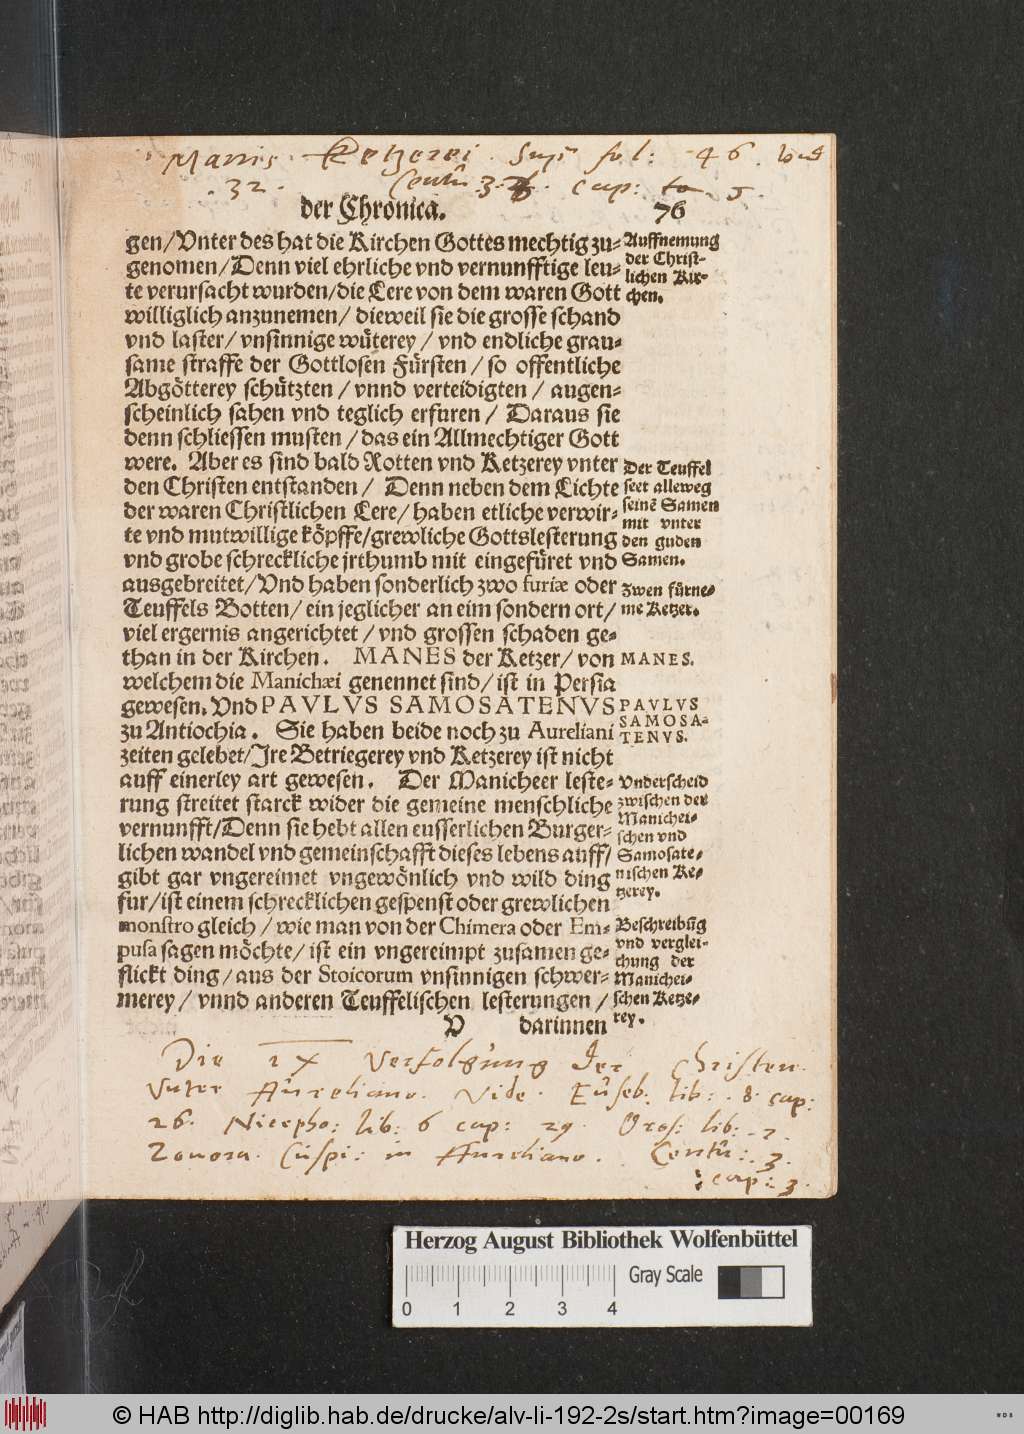 Manis Ketzerei. Supr fol: 46. vnd
.32. Centu 3. cap: 5.
der Chronica. 76
gen/Vnter des hat die Kirchen Gottes mechtig zu-
genomen/Denn viel ehrliche vnd vernunfftige leu-
te verursacht wurden/die Lere von dem waren Gott
williglich anzunemen/ dieweil sie die grosse schand
vnd laster/ vnsinnige wüterey / vnd endliche grau-
same straffe der Gottlosen Fürsten / so offentliche
Abgötterey schützten / vnnd verteidigten / augen-
scheinlich sahen vnd teglich erfuren / Daraus sie
denn schliessen musten / das ein Allmechtiger Gott
were. Aber es sind bald Rotten vnd Ketzerey vnter
den Christen entstanden / Denn neben dem Liechte
der waren Christlichen Lere/ haben etliche verwir-
te vnd mutwillige köpffe/grewliche Gottslesterung
vnd grobe schreckliche jrthumb mit eingefüret vnd
ausgebreitet/ Vnd haben sonderlich zwo furiæ oder
Teuffels Botten / ein jeglicher an eim sondern ort/
viel ergernis angerichtet / vnd grossen schaden ge-
than in der Kirchen. MANES der Ketzer/ von
welchem die Manichæi genennet sind/ ist in Persia
gewesen. Vnd PAVLVS SAMOSATENVS
zu Antiochia. Sie haben beide noch zu Aureliani
zeiten gelebet/Jre Betriegerey vnd Ketzerey ist nicht
auff einerley art gewesen. Der Manicheer leste-
rung streitet starck wider die gemeine menschliche
vernunfft/Denn sie hebt allen eusserlichen Burger-
lichen wandel vnd gemeinschafft dieses lebens auff/
gibt gar vngereimet vngewönlich vnd wild ding
fur/ist einem schrecklichen gespenst oder grewlichen
monstro gleich / wie man von der Chimera oder Em-
pusa sagen möchte/ ist ein vngereimpt zusamen ge-
flickt ding / aus der Stoicorum vnsinnigen schwer-
merey / vnnd anderen Teuffelischen lesterungen /
V darinnen
Auffnemung
der Christ-
lichen Kir-
chen.
Der Teuffel
seet alleweg
seinē Samen
mit vnter
den guden
Samen.
Zwen fürne-
me Ketzer.
MANES.
PAVLVS
SAMOSA-
TENVS.
Vnderscheid
zwischen der
Manichei-
schen vnd
Samosate-
nischen Ke-
tzerey.
Beschreibūg
vnd verglei-
chung der
Manichei-
schen Ketze-
rey.
Die IX Verfolgung der Christen
Vnter Aureliano. Vide. Euseb. lib: .8. cap:
26. Nicepho: lib: 6 cap: 29. Oros: lib: .7.
Zonora. Cuspi: in Aureliano. Centu: .3.
: cap: 3.
Herzog August Bibliothek Wolfenbüttel
Gray Scale
0 1 2 3 4
© HAB http://diglib.hab.de/drucke/alv-li-192-2s/start.htm?image=00169